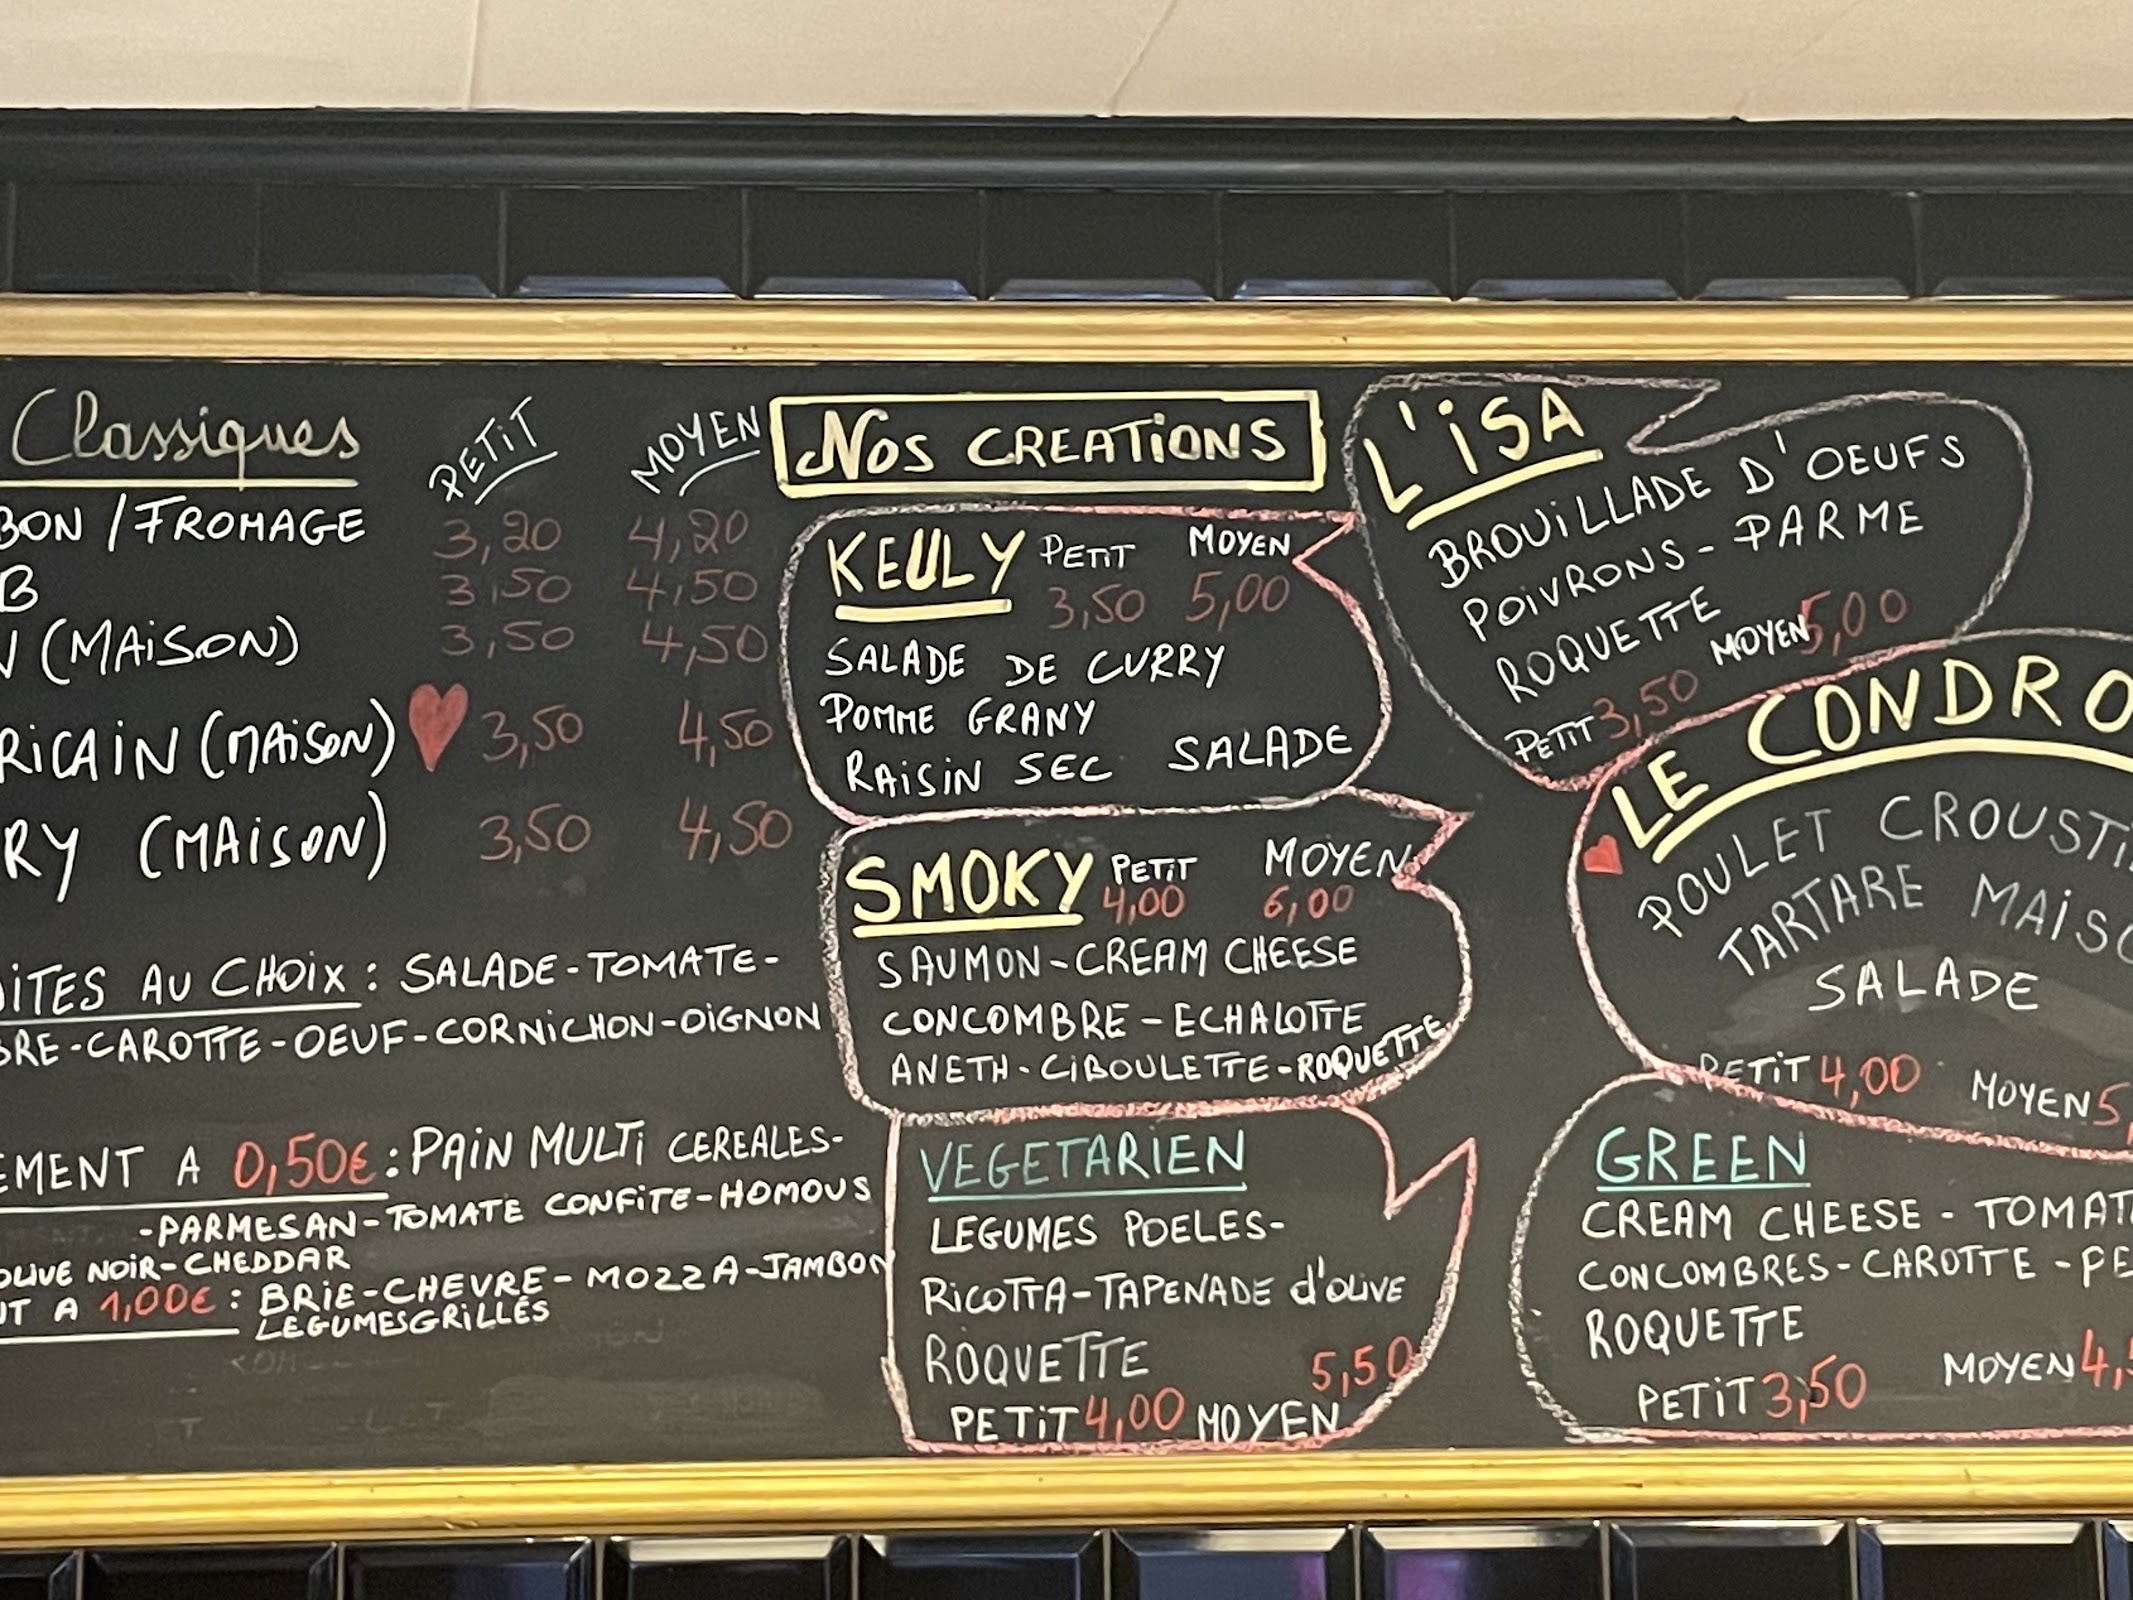 Classiques
PETIT MOYEN
BON / FROMAGE 3,20 4,20
B 3,50 4,50
N (MAISON) 3,50 4,50
RICAIN (MAISON) 3,50 4,50
RY (MAISON) 3,50 4,50
DITES AU CHOIX : SALADE-TOMATE-
BRE-CAROTTE-OEUF-CORNICHON-OIGNON
EMENT A 0,50€ : PAIN MULTI CEREALES-
-PARMESAN-TOMATE CONFITE-HOMOUS
OLIVE NOIR-CHEDDAR
NT A 1,00€ : BRIE-CHEVRE-MOZZA-JAMBON
LEGUMESGRILLÉS
NOS CREATIONS
KELLY PETIT MOYEN
3,50 5,00
SALADE DE CURRY
POMME GRANY
RAISIN SEC SALADE
SMOKY PETIT MOYEN
4,00 6,00
SAUMON-CREAM CHEESE
CONCOMBRE-ECHALOTTE
ANETH-CIBOULETTE-ROQUETTE
VEGETARIEN
LEGUMES POELES-
RICOTTA-TAPENADE d'OLIVE
ROQUETTE 5,50
PETIT 4,00 MOYEN
L'ISA
BROUILLADE D'OEUFS
POIVRONS-PARME
ROQUETTE
PETIT 3,50 MOYEN 5,00
LE CONDRO
POULET CROUSTI
TARTARE MAISO
SALADE
PETIT 4,00 MOYEN 5,
GREEN
CREAM CHEESE - TOMAT
CONCOMBRES-CAROTTE-PE
ROQUETTE
PETIT 3,50 MOYEN 4,5